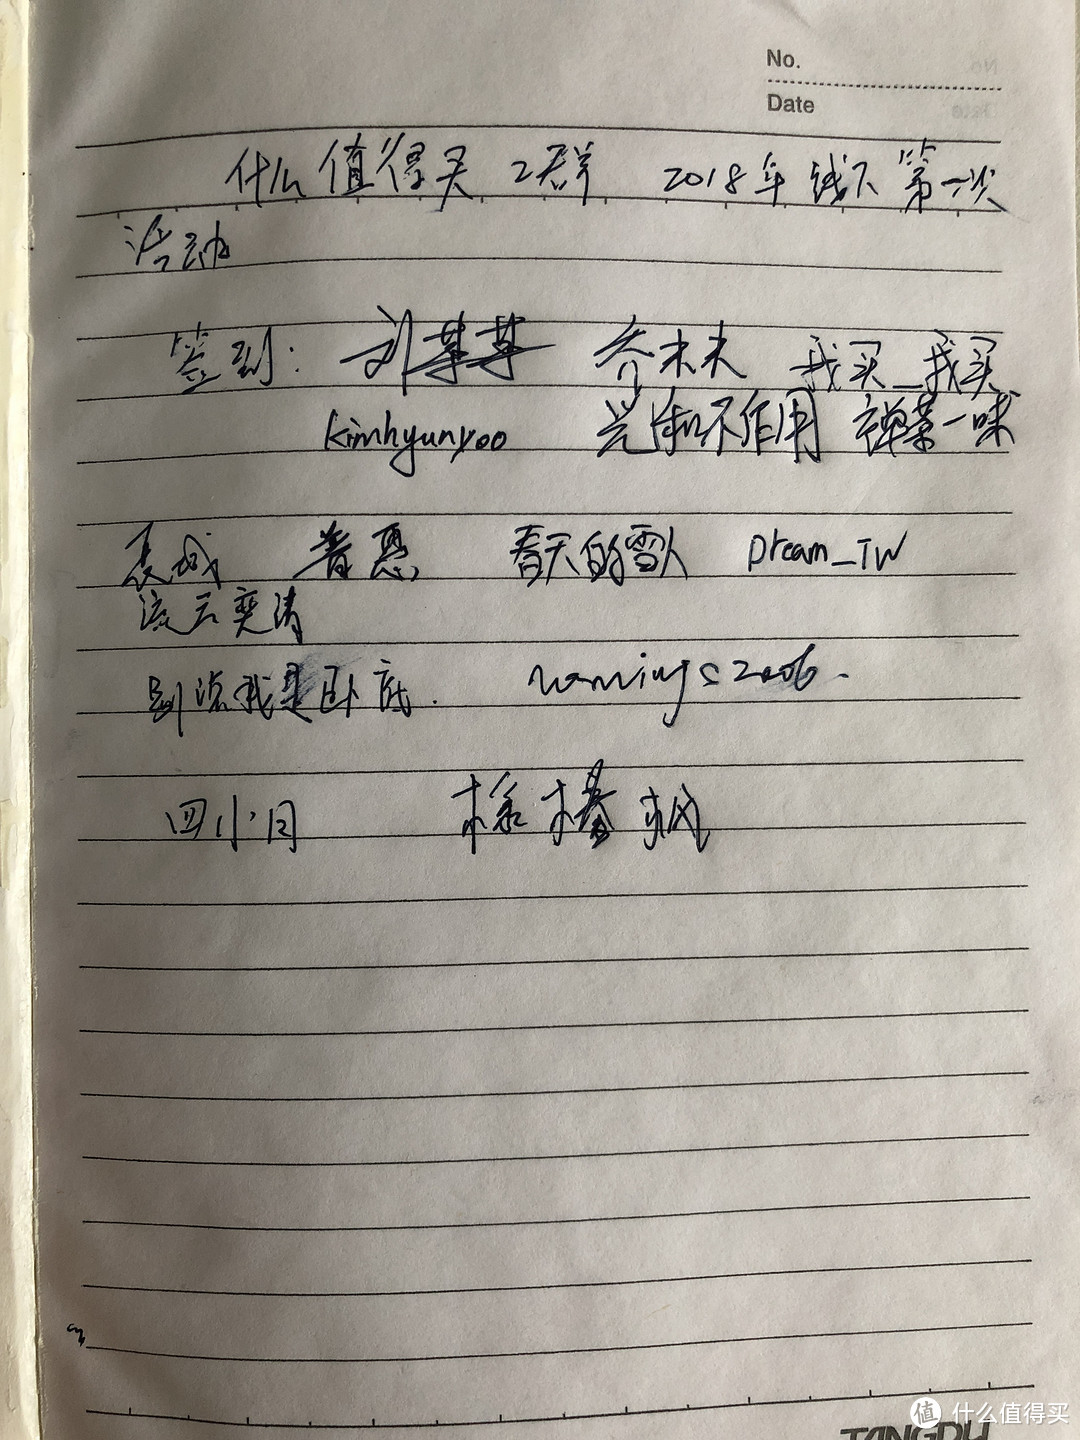 No.
Date
什么值得买 2群 2018年线下第一次
活动
签到: 刘某某 乔木木 我买_我买
kimhyunyoo 光和不作用 禅茶一味
夏城 普惠 春天的雪人 Dream_TW
流云奕清
别说我是卧底.
四小目
什么值得买